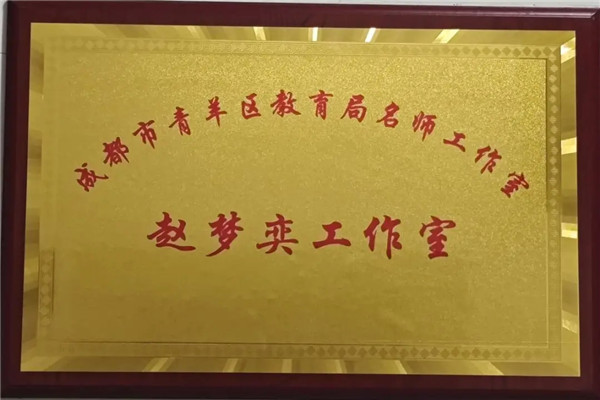 成都市青羊区教育局名师工作室
赵梦奕工作室